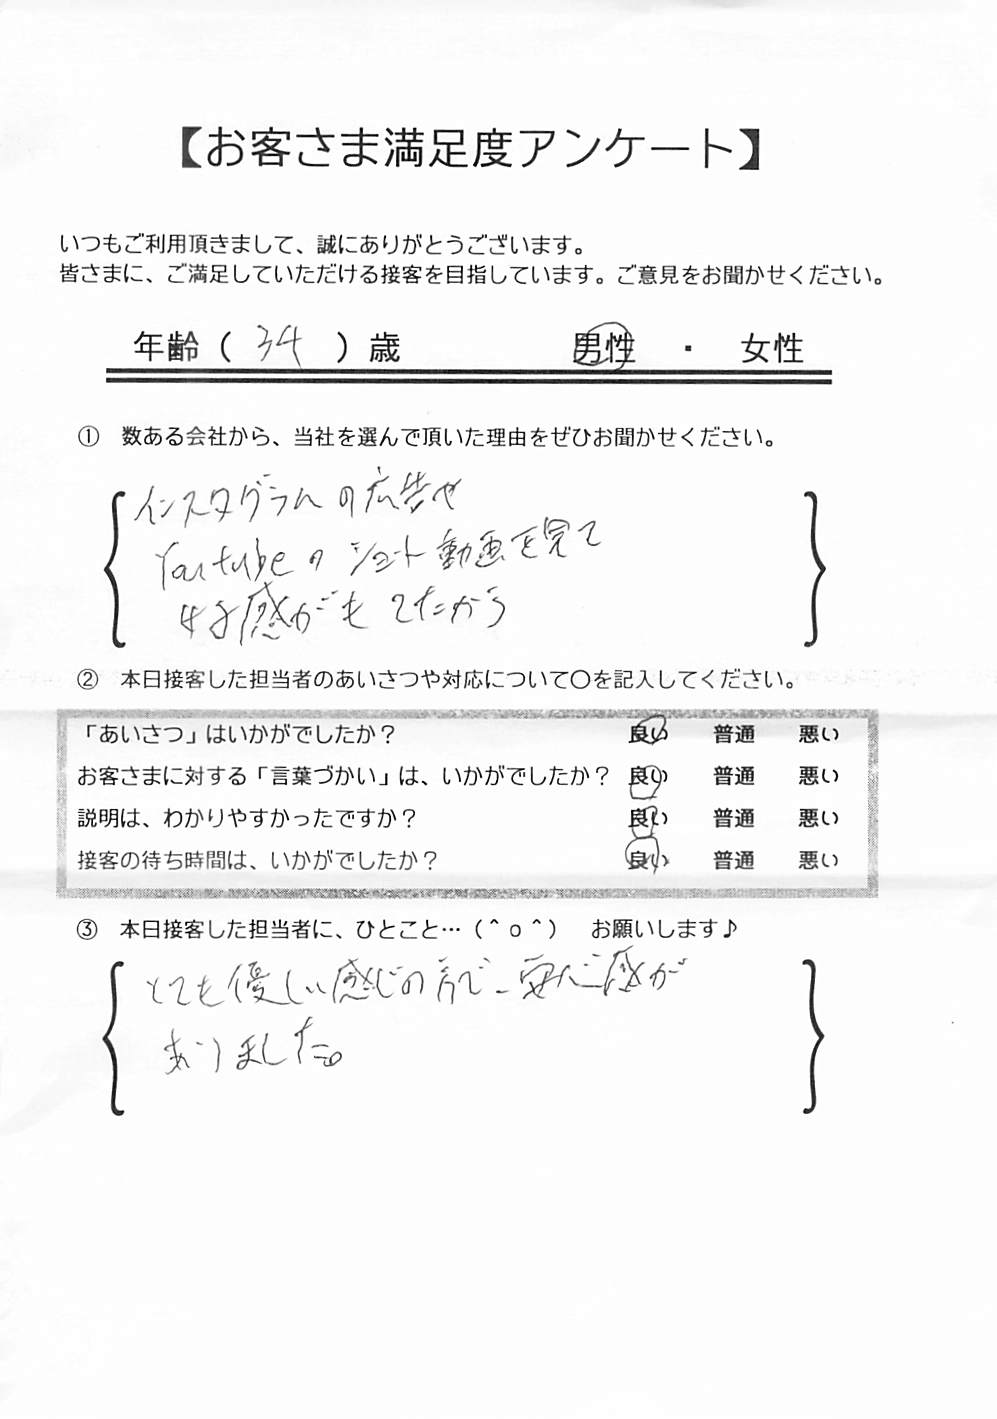 【お客さま満足度アンケート】
いつもご利用頂きまして、誠にありがとうございます。
皆さまに、ご満足していただける接客を目指しています。ご意見をお聞かせください。
年齢（ 34 ）歳　男性 ・ 女性
① 数ある会社から、当社を選んで頂いた理由をぜひお聞かせください。
インスタグラムの広告や
Youtubeのショート動画を見て
好感がもてたから
② 本日接客した担当者のあいさつや対応について〇を記入してください。
「あいさつ」はいかがでしたか？ 良い 普通 悪い
お客さまに対する「言葉づかい」は、いかがでしたか？ 良い 普通 悪い
説明は、わかりやすかったですか？ 良い 普通 悪い
接客の待ち時間は、いかがでしたか？ 良い 普通 悪い
③ 本日接客した担当者に、ひとこと…（＾ｏ＾） お願いします♪
とても優しい感じの方で、安心感が
ありました。